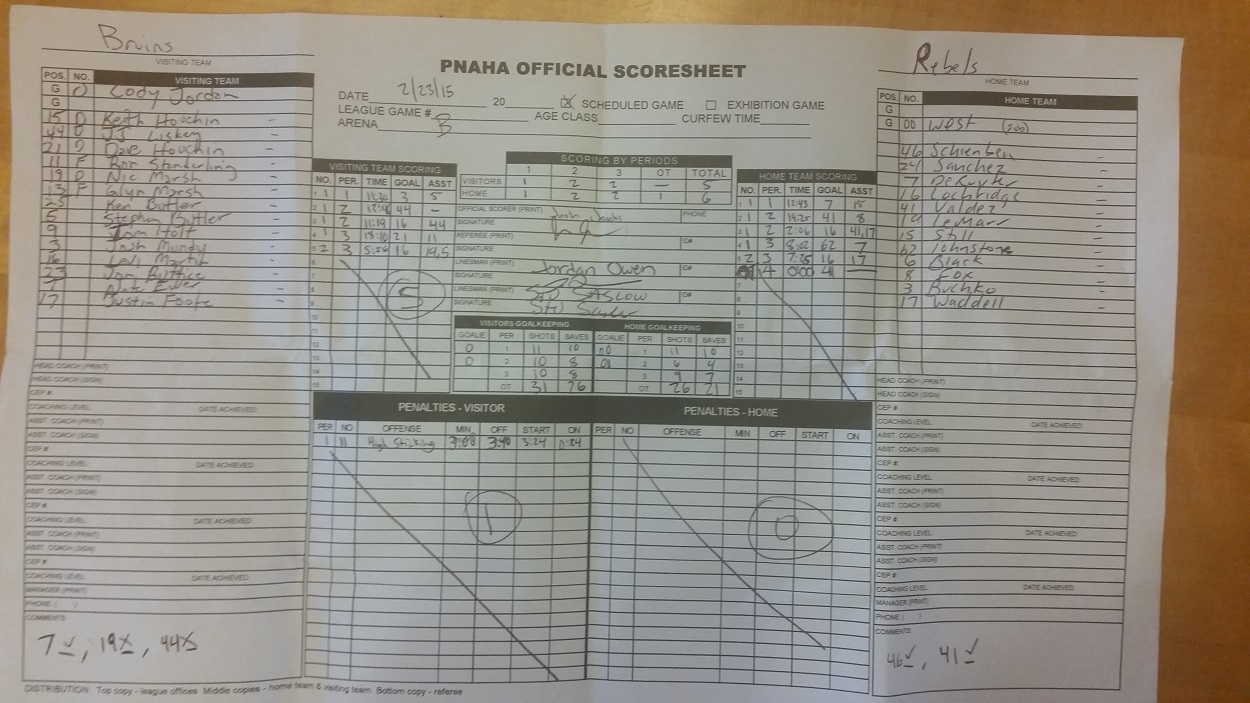 Bruins
VISITING TEAM
POS. NO. VISITING TEAM
G 0 Cody Jordan
G
15 D Keith Houchin -
44 D DJ Liskey -
21 D Dave Houchin -
11 F Ron Standerling -
19 D Nic Marsh -
13 F Glyn Marsh -
25 Ken Butler -
5 Stephen Butler -
9 Tom Holt -
3 Josh Mundy -
16 Levi Martit -
23 Jon Buttice -
7 Nate Euler -
17 Justin Foote -
HEAD COACH (PRINT)
HEAD COACH (SIGN)
CEP #
COACHING LEVEL DATE ACHIEVED
ASST. COACH (PRINT)
ASST. COACH (SIGN)
CEP #
COACHING LEVEL DATE ACHIEVED
ASST. COACH (PRINT)
ASST. COACH (SIGN)
CEP #
COACHING LEVEL DATE ACHIEVED
ASST. COACH (PRINT)
ASST. COACH (SIGN)
CEP #
COACHING LEVEL DATE ACHIEVED
MANAGER (PRINT)
PHONE ( )
COMMENTS
7, 19, 44
PNAHA OFFICIAL SCORESHEET
DATE 2/23/15 20 SCHEDULED GAME EXHIBITION GAME
LEAGUE GAME # AGE CLASS CURFEW TIME
ARENA B
VISITING TEAM SCORING
NO. PER. TIME GOAL ASST
1 1 11:36 3 5
2 2 12:4 44 -
3 2 11:19 16 44
4 3 18:10 21 11
5 3 5:54 16 19,5
5
SCORING BY PERIODS
1 2 3 OT TOTAL
VISITORS 1 2 2 - 5
HOME 1 2 2 1 6
OFFICIAL SCORER (PRINT) PHONE
SIGNATURE
REFEREE (PRINT) C#
SIGNATURE
LINESMAN (PRINT) Jordan Owen C#
SIGNATURE
LINESMAN (PRINT) Stu Saslow C#
SIGNATURE
VISITORS GOALKEEPING HOME GOALKEEPING
GOALIE PER SHOTS SAVES GOALIE PER SHOTS SAVES
0 1 11 10 00 1 11 10
0 2 10 8 00 2 6 4
3 10 8 3 9 7
OT 31 26 OT 26 21
HOME TEAM SCORING
NO. PER. TIME GOAL ASST
1 1 12:43 7 15
2 2 14:25 41 8
3 2 2:06 16 41,17
4 3 8:02 62 7
5 3 7:25 16 17
4 0:00 41 -
PENALTIES - VISITOR PENALTIES - HOME
PER NO OFFENSE MIN. OFF START ON PER NO OFFENSE MIN OFF START ON
1 11 High Sticking 3:00 3:24 0:24
1
0
Rebels
HOME TEAM
POS. NO. HOME TEAM
G
G 00 West (sub)
46 Schienbein -
24 Sanchez -
7 DeRuyter -
16 Lochridge -
41 Valdez -
14 LeMarr -
15 Still -
62 Johnstone -
6 Black -
8 Fox -
3 Buchko -
17 Waddell -
HEAD COACH (PRINT)
HEAD COACH (SIGN)
CEP #
COACHING LEVEL DATE ACHIEVED
ASST. COACH (PRINT)
ASST. COACH (SIGN)
CEP #
COACHING LEVEL DATE ACHIEVED
ASST. COACH (PRINT)
ASST. COACH (SIGN)
CEP #
COACHING LEVEL DATE ACHIEVED
ASST. COACH (PRINT)
ASST. COACH (SIGN)
CEP #
COACHING LEVEL DATE ACHIEVED
MANAGER (PRINT)
PHONE ( )
COMMENTS
46, 41
DISTRIBUTION: Top copy - league offices Middle copies - home team & visiting team Bottom copy - referee